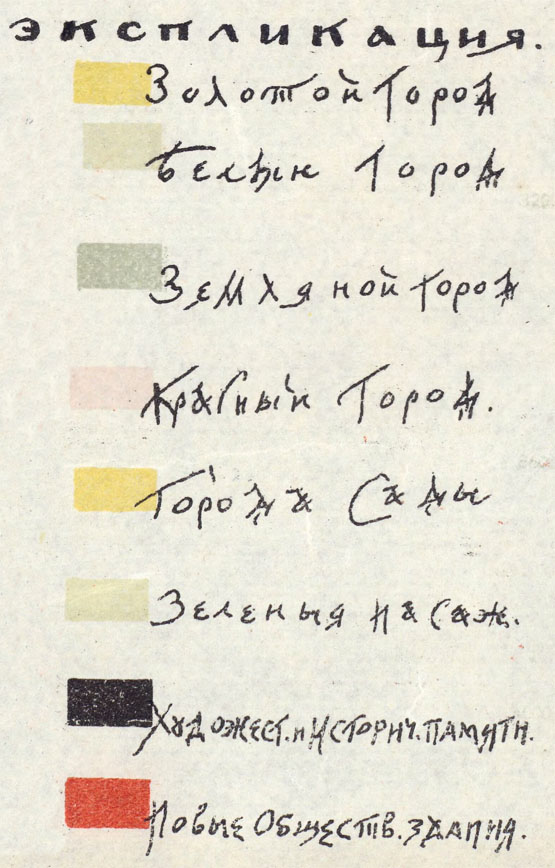 экспликация.
Золотой Город
Белый Город
Земляной город
Красный Город.
Города Сады
Зеленыя насаж.
Художест. и Историч. памятн.
Новые Обществ. здания.